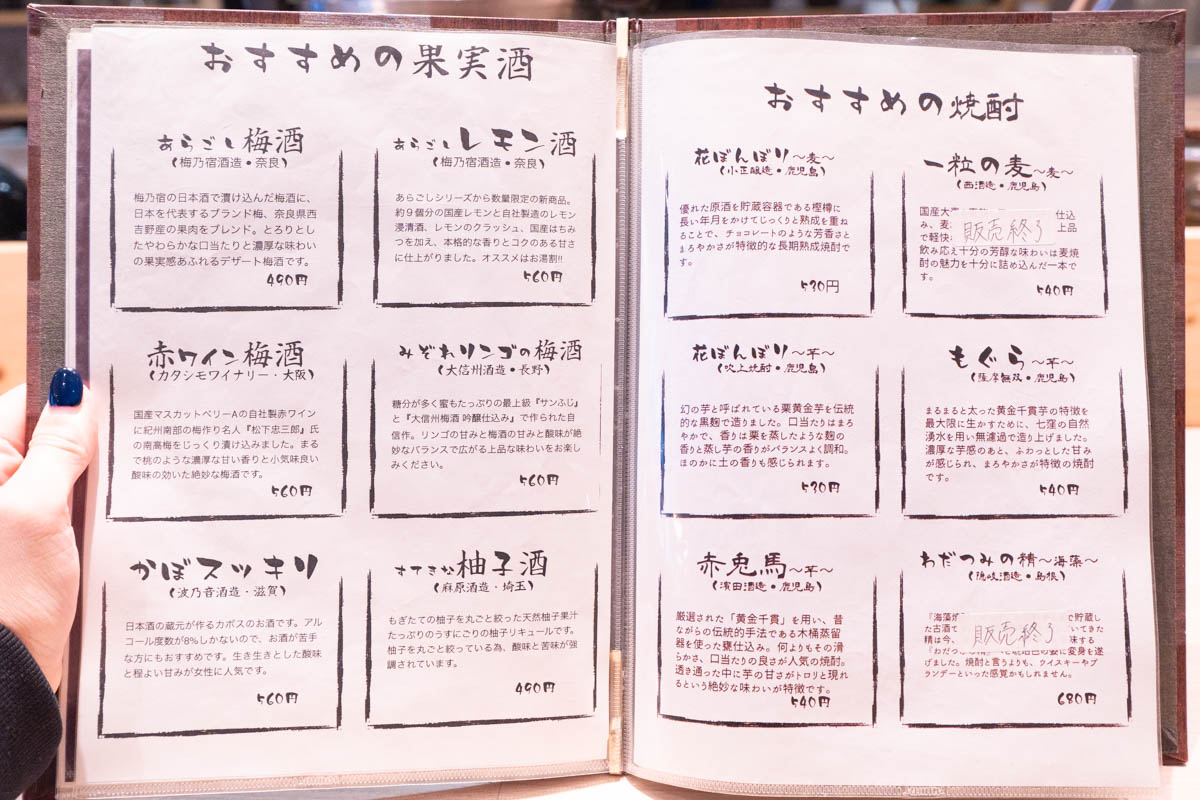 おすすめの果実酒
あらごし梅酒
(梅乃宿酒造・奈良)
梅乃宿の日本酒で漬け込んだ梅酒に、
日本を代表するブランド梅、奈良県西
吉野産の果肉をブレンド。とろりとし
たやわらかな口当たりと濃厚な味わい
の果実感あふれるデザート梅酒です。
490円
あらごしレモン酒
(梅乃宿酒造・奈良)
あらごしシリーズから数量限定の新商品。
約９個分の国産レモンと自社製造のレモン
浸漬酒、レモンのクラッシュ、国産はちみ
つを加え、本格的な香りとコクのある甘さ
に仕上がりました。オススメはお湯割!!
560円
赤ワイン梅酒
(カタシモワイナリー・大阪)
国産マスカットベリーAの自社製赤ワイン
に紀州南部の梅作り名人『松下忠三郎』氏
の南高梅をじっくり漬け込みました。まる
で桃のような濃厚な甘い香りと小気味良い
酸味の効いた絶妙な梅酒です。
560円
みぞれリンゴの梅酒
(大信州酒造・長野)
糖分が多く蜜もたっぷりの最上級『サンふじ』
と『大信州梅酒 吟醸仕込み』で作られた自
信作。リンゴの甘みと梅酒の甘みと酸味が絶
妙なバランスで広がる上品な味わいをお楽し
みください。
560円
かぼスッキリ
(波乃音酒造・滋賀)
日本酒の蔵元が作るカボスのお酒です。アル
コール度数が8%しかないので、お酒が苦手
な方にもおすすめです。生き生きとした酸味
と程よい甘みが女性に人気です。
560円
すてきな柚子酒
(麻原酒造・埼玉)
もぎたての柚子を丸ごと絞った天然柚子果汁
たっぷりのうすにごりの柚子リキュールです。
柚子を丸ごと絞っている為、酸味と苦味が強
調されています。
490円
おすすめの焼酎
花ぼんぼり〜麦〜
(小正醸造・鹿児島)
優れた原酒を貯蔵容器である樫樽に
長い年月をかけてじっくりと熟成を重ね
ることで、チョコレートのような芳香さと
まろやかさが特徴的な長期熟成焼酎で
す。
530円
一粒の麦〜麦〜
(西酒造・鹿児島)
国産大 仕込
み、麦: 上品
で軽快: 販売終了
飲み応え十分の芳醇な味わいは麦焼
酎の魅力を十分に詰め込んだ一本で
す。
540円
花ぼんぼり〜芋〜
(吹上焼酎・鹿児島)
幻の芋と呼ばれている栗黄金芋を伝統
的な黒麹で造りました。口当たりはまろ
やかで、香りは栗を蒸したような麹の
香りと蒸し芋の香りがバランスよく調和。
ほのかに土の香りも感じられます。
530円
もぐら〜芋〜
(薩摩無双・鹿児島)
まるまると太った黄金千貫芋の特徴を
最大限に生かすために、七窪の自然
湧水を用い無濾過で造り上げました。
濃厚な芋感のあと、ふわっとした甘み
が感じられ、まろやかさが特徴の焼酎
です。
540円
赤兎馬〜芋〜
(濱田酒造・鹿児島)
厳選された「黄金千貫」を用い、昔
ながらの伝統的手法である木桶蒸留
器を使った甕仕込み。何よりもその滑
らかさ、口当たりの良さが人気の焼酎。
透き通った中に芋の甘さがトロリと現れ
るという絶妙な味わいが特徴です。
540円
わだつみの精〜海藻〜
(隠岐酒造・島根)
『海藻が で貯蔵し
た古酒で いてきた
精は今、 販売終了 味する
げました。焼酎と言うよりも、ウイスキーやブ
ランデーといった感覚かもしれません。
680円